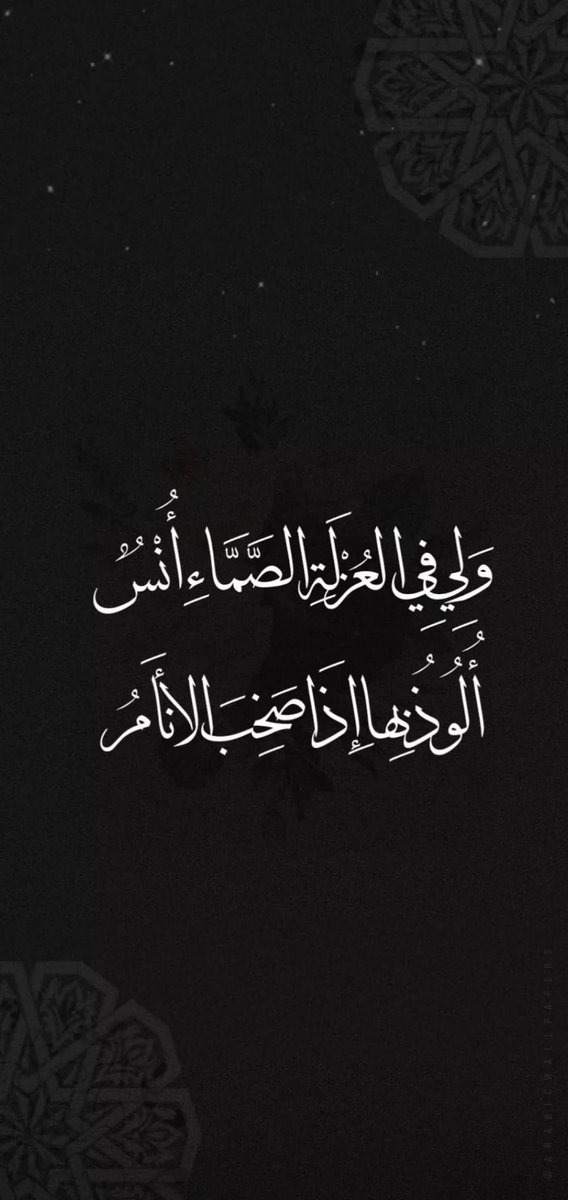 وَلِي فِي العُزْلَةِ الصَّمَّاءِ أُنْسٌ
أَُلُوُذُ بِهاِ إِذَا صَخِبَ الأنَامُ
@ARABICWALLPAPERS